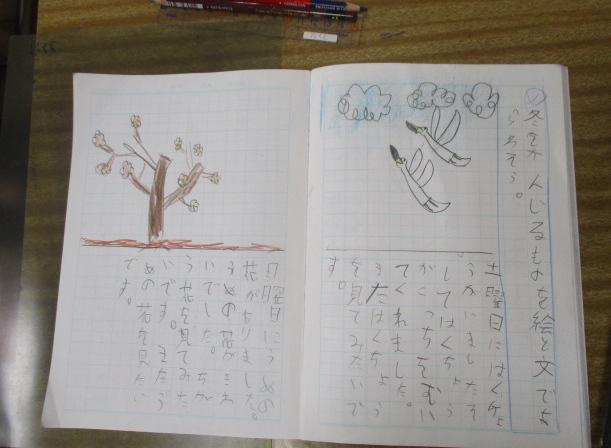 冬をかんじるものを絵と文であ
らわそう。
土曜日にはくちょ
うがいました。そ
してはくちょう
がこっちをむい
てくれました。
またはくちょう
を見てみたいで
す。
日曜日にうめの
花がありました。
うめの花がきれ
いでした。ちが
う花を見てみた
いです。またう
めの花を見たい
です。